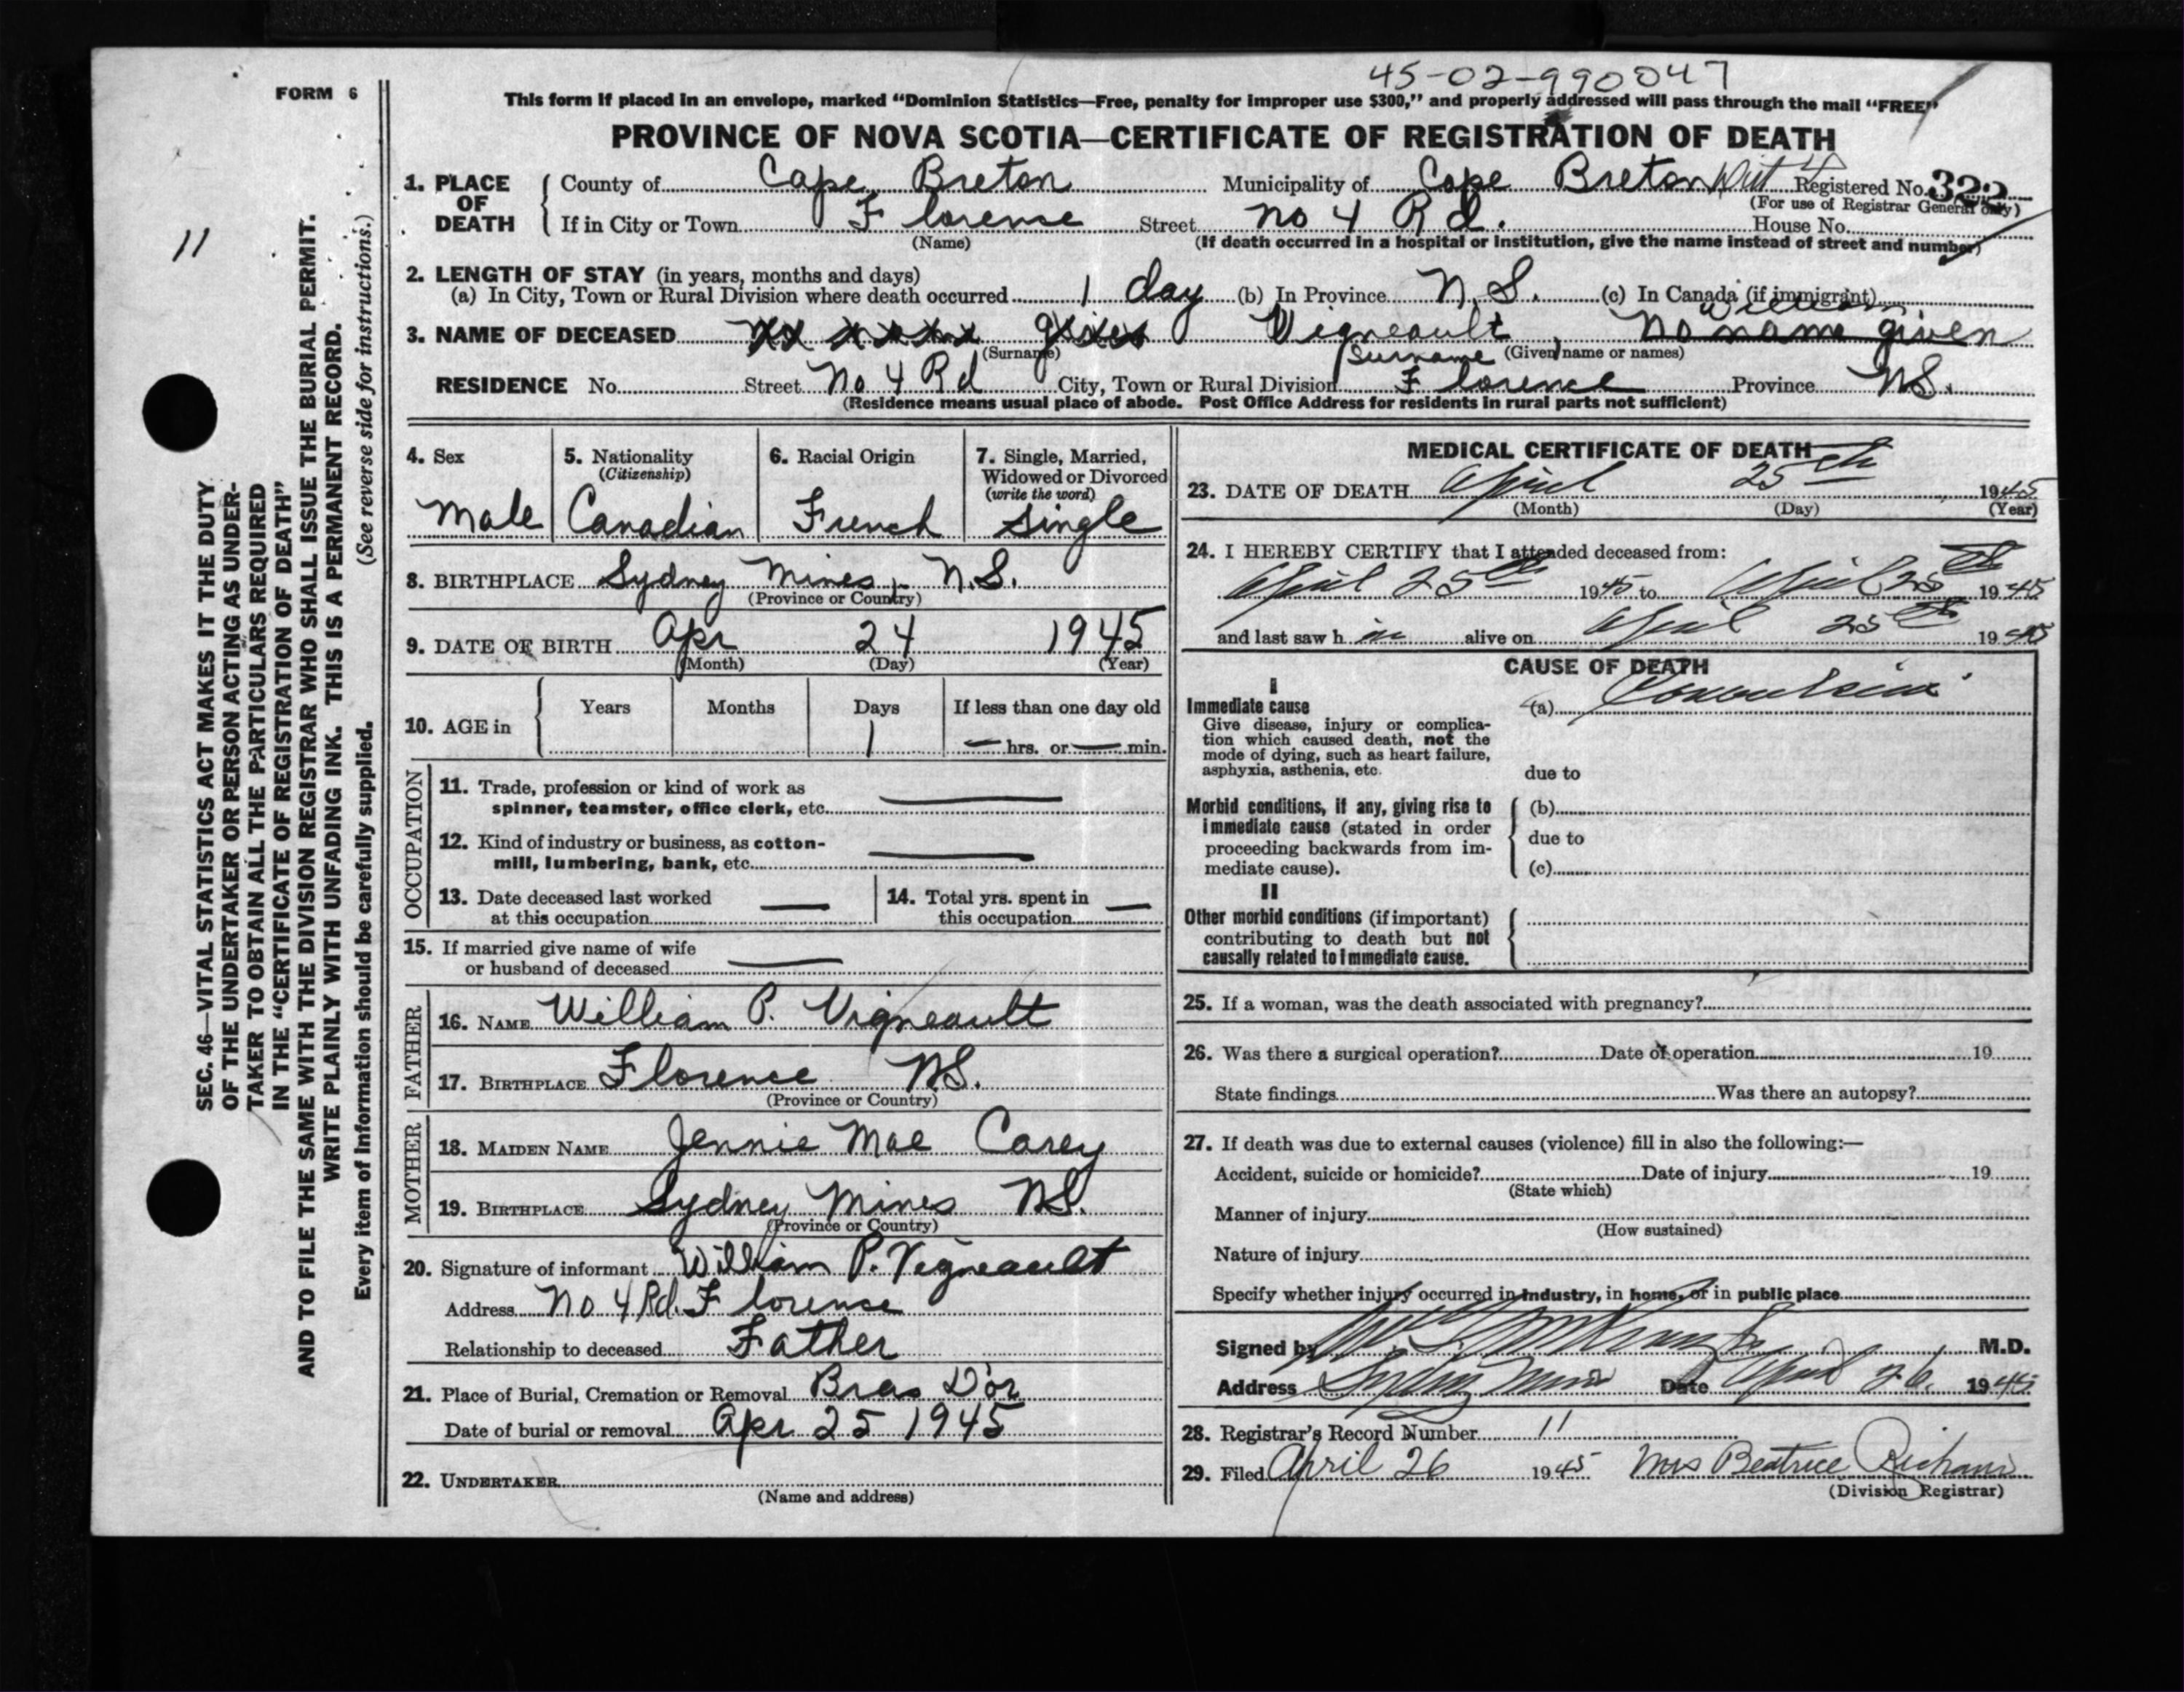 45-02-990047
FORM 6
This form if placed in an envelope, marked “Dominion Statistics—Free, penalty for improper use $300,” and properly addressed will pass through the mail “FREE”
PROVINCE OF NOVA SCOTIA—CERTIFICATE OF REGISTRATION OF DEATH
11
SEC. 46—VITAL STATISTICS ACT MAKES IT THE DUTY
OF THE UNDERTAKER OR PERSON ACTING AS UNDER-
TAKER TO OBTAIN ALL THE PARTICULARS REQUIRED
IN THE “CERTIFICATE OF REGISTRATION OF DEATH”
AND TO FILE THE SAME WITH THE DIVISION REGISTRAR WHO SHALL ISSUE THE BURIAL PERMIT.
WRITE PLAINLY WITH UNFADING INK. THIS IS A PERMANENT RECORD.
Every item of information should be carefully supplied. (See reverse side for instructions.)
1. PLACE OF DEATH
County of Cape Breton Municipality of Cape Breton Registered No. 322
(For use of Registrar General only)
If in City or Town Florence Street No 4 Rd. House No.
(Name) (If death occurred in a hospital or institution, give the name instead of street and number)
2. LENGTH OF STAY (in years, months and days)
(a) In City, Town or Rural Division where death occurred 1 day (b) In Province N.S. (c) In Canada (if immigrant)
William
3. NAME OF DECEASED Vigneault, No name given
(Surname) Surname (Given name or names)
RESIDENCE No. Street No 4 Rd City, Town or Rural Division Florence Province N.S.
(Residence means usual place of abode. Post Office Address for residents in rural parts not sufficient)
4. Sex
Male
5. Nationality
(Citizenship)
Canadian
6. Racial Origin
French
7. Single, Married,
Widowed or Divorced
(write the word)
Single
8. BIRTHPLACE Sydney Mines, N.S.
(Province or Country)
9. DATE OF BIRTH Apr 24 1945
(Month) (Day) (Year)
10. AGE in
Years Months Days If less than one day old
1 — hrs. or — min.
OCCUPATION
11. Trade, profession or kind of work as
spinner, teamster, office clerk, etc. —
12. Kind of industry or business, as cotton-
mill, lumbering, bank, etc. —
13. Date deceased last worked
at this occupation —
14. Total yrs. spent in
this occupation —
15. If married give name of wife
or husband of deceased —
FATHER
16. NAME William P. Vigneault
17. BIRTHPLACE Florence N.S.
(Province or Country)
MOTHER
18. MAIDEN NAME Jennie Mae Carey
19. BIRTHPLACE Sydney Mines N.S.
(Province or Country)
20. Signature of informant William P. Vigneault
Address No 4 Rd. Florence
Relationship to deceased Father
21. Place of Burial, Cremation or Removal Bras D'or
Date of burial or removal Apr 25 1945
22. UNDERTAKER
(Name and address)
MEDICAL CERTIFICATE OF DEATH
23. DATE OF DEATH April 25th 1945
(Month) (Day) (Year)
24. I HEREBY CERTIFY that I attended deceased from:
April 25th 1945 to April 25th 1945
and last saw h im alive on April 25th 1945
CAUSE OF DEATH
I
Immediate cause
Give disease, injury or complica-
tion which caused death, not the
mode of dying, such as heart failure,
asphyxia, asthenia, etc.
(a) Convulsions
due to
Morbid conditions, if any, giving rise to
immediate cause (stated in order
proceeding backwards from im-
mediate cause).
(b)
due to
(c)
II
Other morbid conditions (if important)
contributing to death but not
causally related to immediate cause.
25. If a woman, was the death associated with pregnancy?
26. Was there a surgical operation? Date of operation 19
State findings Was there an autopsy?
27. If death was due to external causes (violence) fill in also the following:—
Accident, suicide or homicide? Date of injury 19
(State which)
Manner of injury
(How sustained)
Nature of injury
Specify whether injury occurred in industry, in home, or in public place
Signed by M.D.
Address Sydney Mines Date April 26, 1945
28. Registrar's Record Number 11
29. Filed April 26 1945 Mrs Beatrice
(Division Registrar)